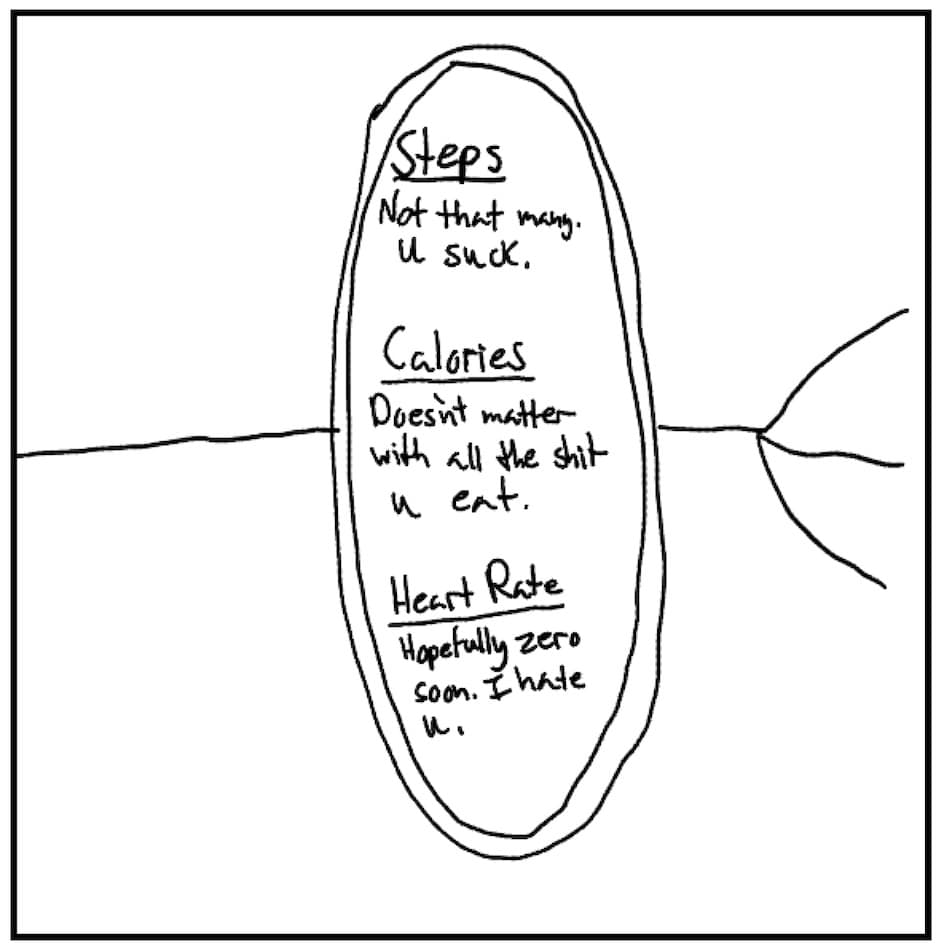 Steps
Not that many.
U suck.
Calories
Doesn't matter
with all the shit
u eat.
Heart Rate
Hopefully zero
soon. I hate
u.